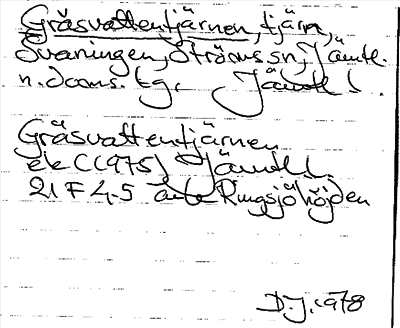 Gräsvattentjärnen, tjärn,
Svaningen, Ströms sn, Jämtl.
n. doms. tg. Jämtl.
Gräsvattentjärnen
ek C (1975) Jämtl l.
21 F 4-5 Ringsjöhöjden
D.J. 1978